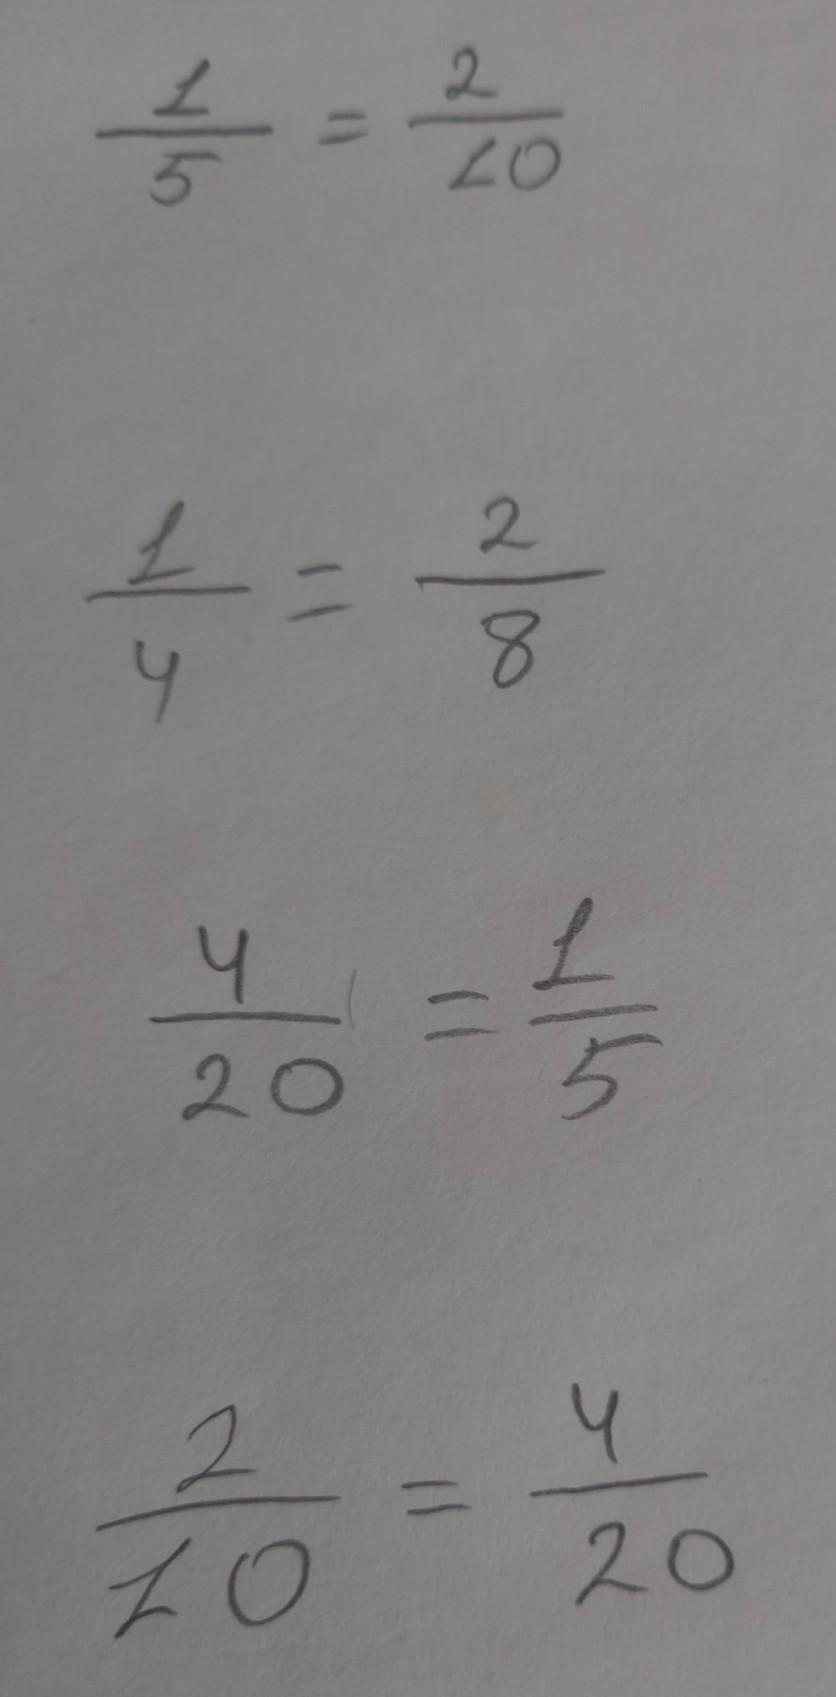 1/5 = 2/10
1/4 = 2/8
4/20 = 1/5
2/10 = 4/20